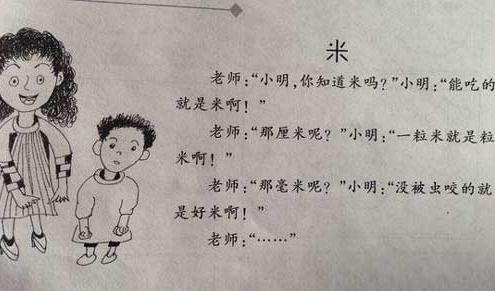 米
老师:“小明,你知道米吗?”小明:“能吃的
就是米啊!”
老师:“那厘米呢?”小明:“一粒米就是粒
米啊!”
老师:“那毫米呢?”小明:“没被虫咬的就
是好米啊!”
老师:“……”